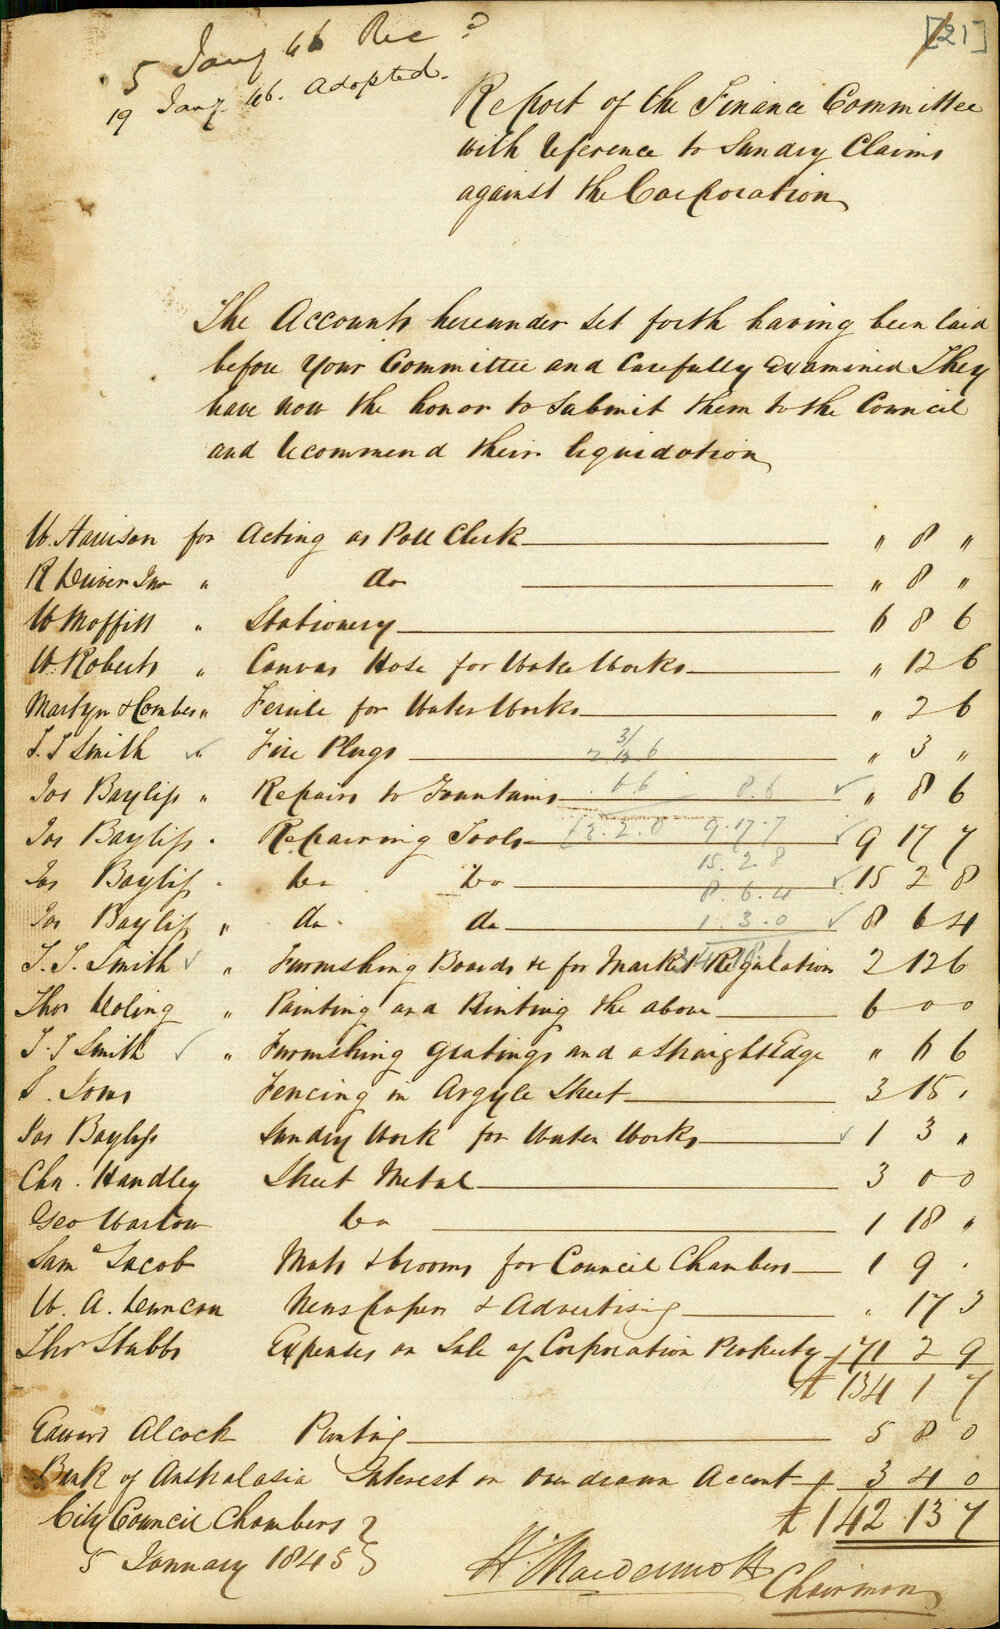 [21]
5 Jany 46 Rec d
19 Jany 46. Adopted.
Report of the Finance Committee
with reference to Sundry Claims
against the Corporation
The Accounts hereunder set forth having been laid
before Your Committee and Carefully Examined They
have now the honor to submit them to the Council
and recommend their liquidation
W. Harrison for Acting as Poll Clerk " 8 "
R Driver Jnr " do " 8 "
W Moffitt " Stationery 6 8 6
W. Roberts " Canvas Hose for Water Works " 12 6
Martyn & Combes " Ferule for Water Works " 2 6
T. J Smith Fire Plugs " 3 "
Jos Bayliss " Repairs to Fountains 8.6 " 8 6
Jas Bayliss " Repairing Tools 9.17.7 9 17 7
Jas Bayliss " Do Do 15.2.8 15 2 8
8.6.4
Jas Bayliss " do do 1.3.0 8 6 4
T. J. Smith " Furnishing Boards &c for Market Regulation 2 12 6
Thos " Painting and Printing the above 6 0 0
T. J Smith " Furnishing Gratings and a Straight Edge " 6 6
S. Jones Fencing in Argyle Street 3 15 "
Jas Bayliss Sundry Work for Water Works 1 3 "
Chs. Handley Sheet Metal 3 0 0
Geo Do 1 18 "
Saml Jacob Mats & brooms for Council Chambers 1 9 "
W. A. Duncan Newspapers & Advertising " 17 3
Thos Stubbs Expenses on Sale of Corporation Property 71 2 9
£ 134 1 7
Edward Alcock Printing 5 8 0
Bank of Australasia Interest on Overdrawn Account 3 4 0
£ 142 13 7
City Council Chambers }
5 January 1845 }
H. Macdermott
Chairman